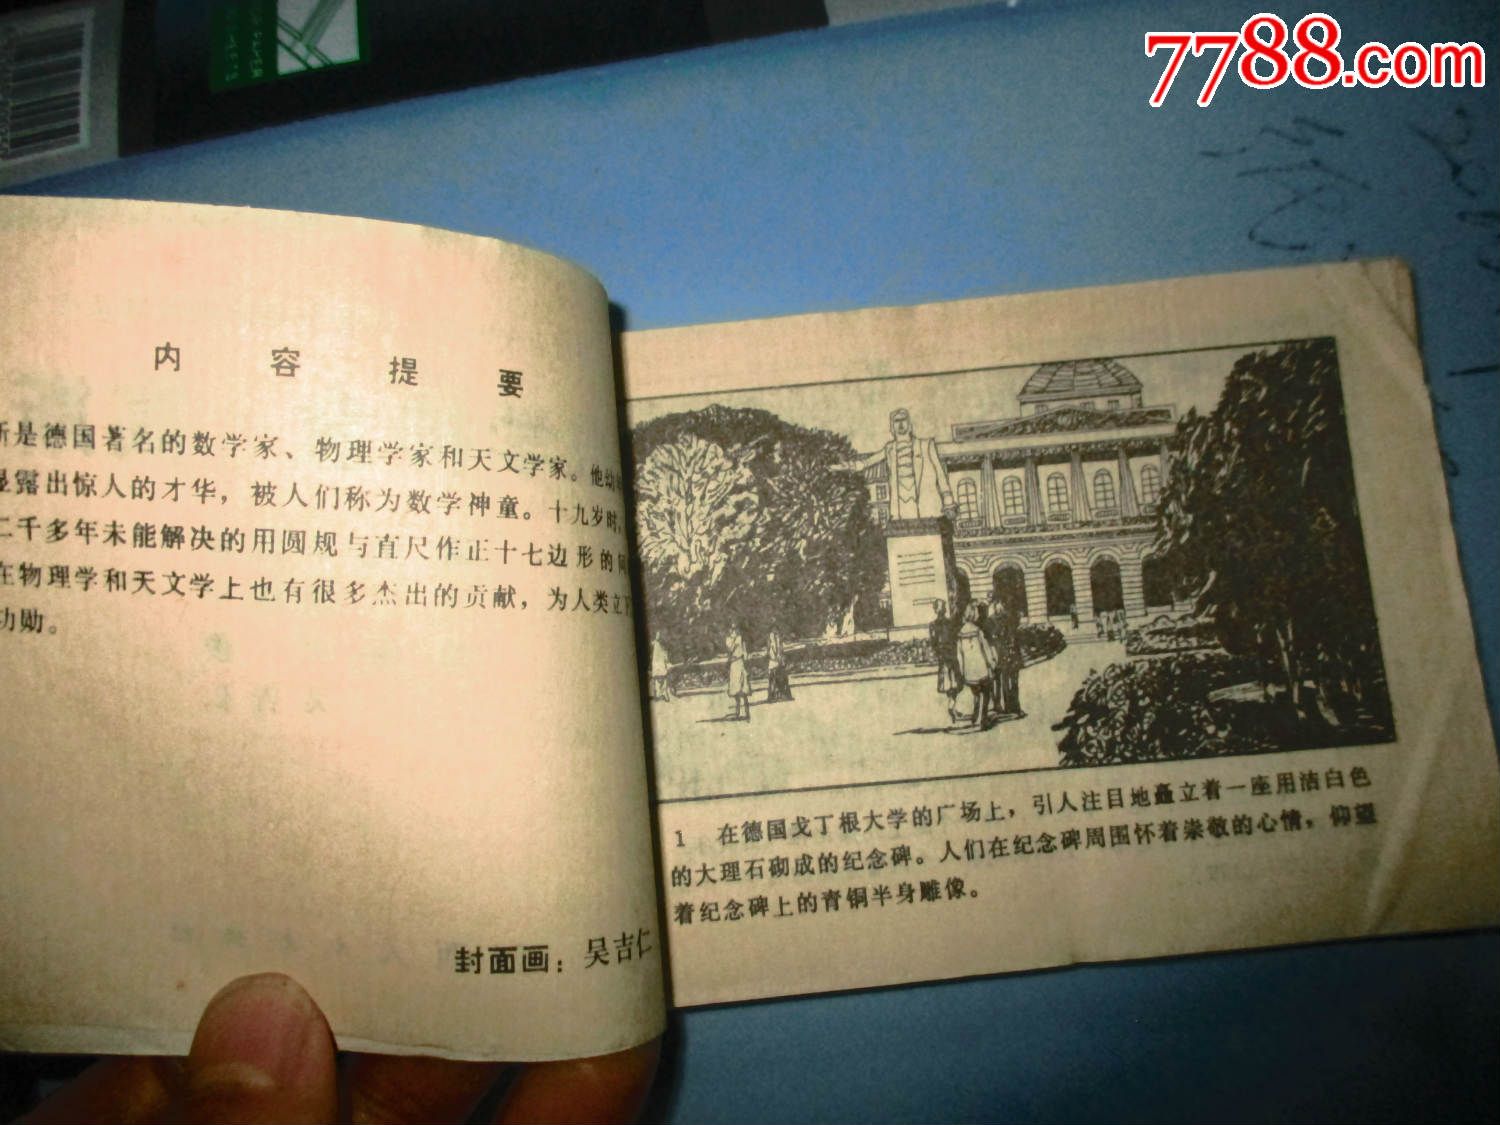 7788.com
内容提要
斯是德国著名的数学家、物理学家和天文学家。他幼
显露出惊人的才华，被人们称为数学神童。十九岁时，
二千多年未能解决的用圆规与直尺作正十七边形的问
在物理学和天文学上也有很多杰出的贡献，为人类立下
功勋。
封面画：吴吉仁
1 在德国戈丁根大学的广场上，引人注目地矗立着一座用洁白色
的大理石砌成的纪念碑。人们在纪念碑周围怀着崇敬的心情，仰望
着纪念碑上的青铜半身雕像。